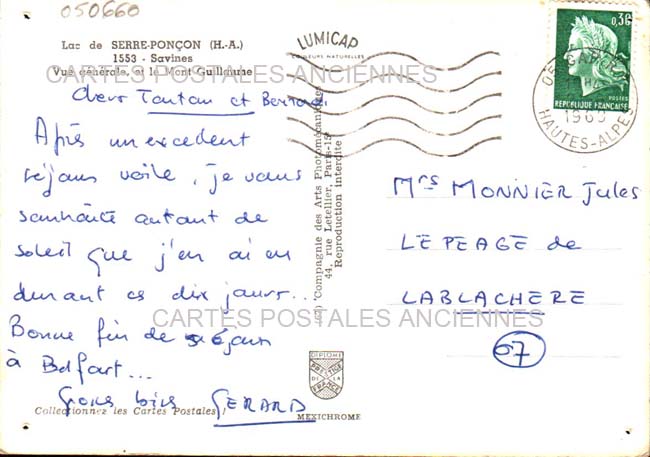 050660
Lac de SERRE-PONÇON (H.-A.)
1553 - Savines
Vue générale, et le Mont Guillaume
CARTES POSTALES ANCIENNES
LUMICAP
COULEURS NATURELLES
0,30
POSTES
REPUBLIQUE FRANÇAISE
1969
HAUTES-ALPES
Chers Tonton et
Après un excedent
séjour voile, je vous
souhaite autant de
soleil que j'en ai eu
durant ces dix jours...
Bonne fin de séjour
à Belfort...
Gros bises GERARD
Compagnie des Arts Photomécaniques
44, rue Letellier, Paris-15e
Reproduction interdite
Mrs MONNIER Jules
LE PEAGE de
LABLACHERE
07
CARTES POSTALES ANCIENNES
DIPLOME
PRESTIGE
DE LA
FRANCE
Collectionnez les Cartes Postales !
MEXICHROME